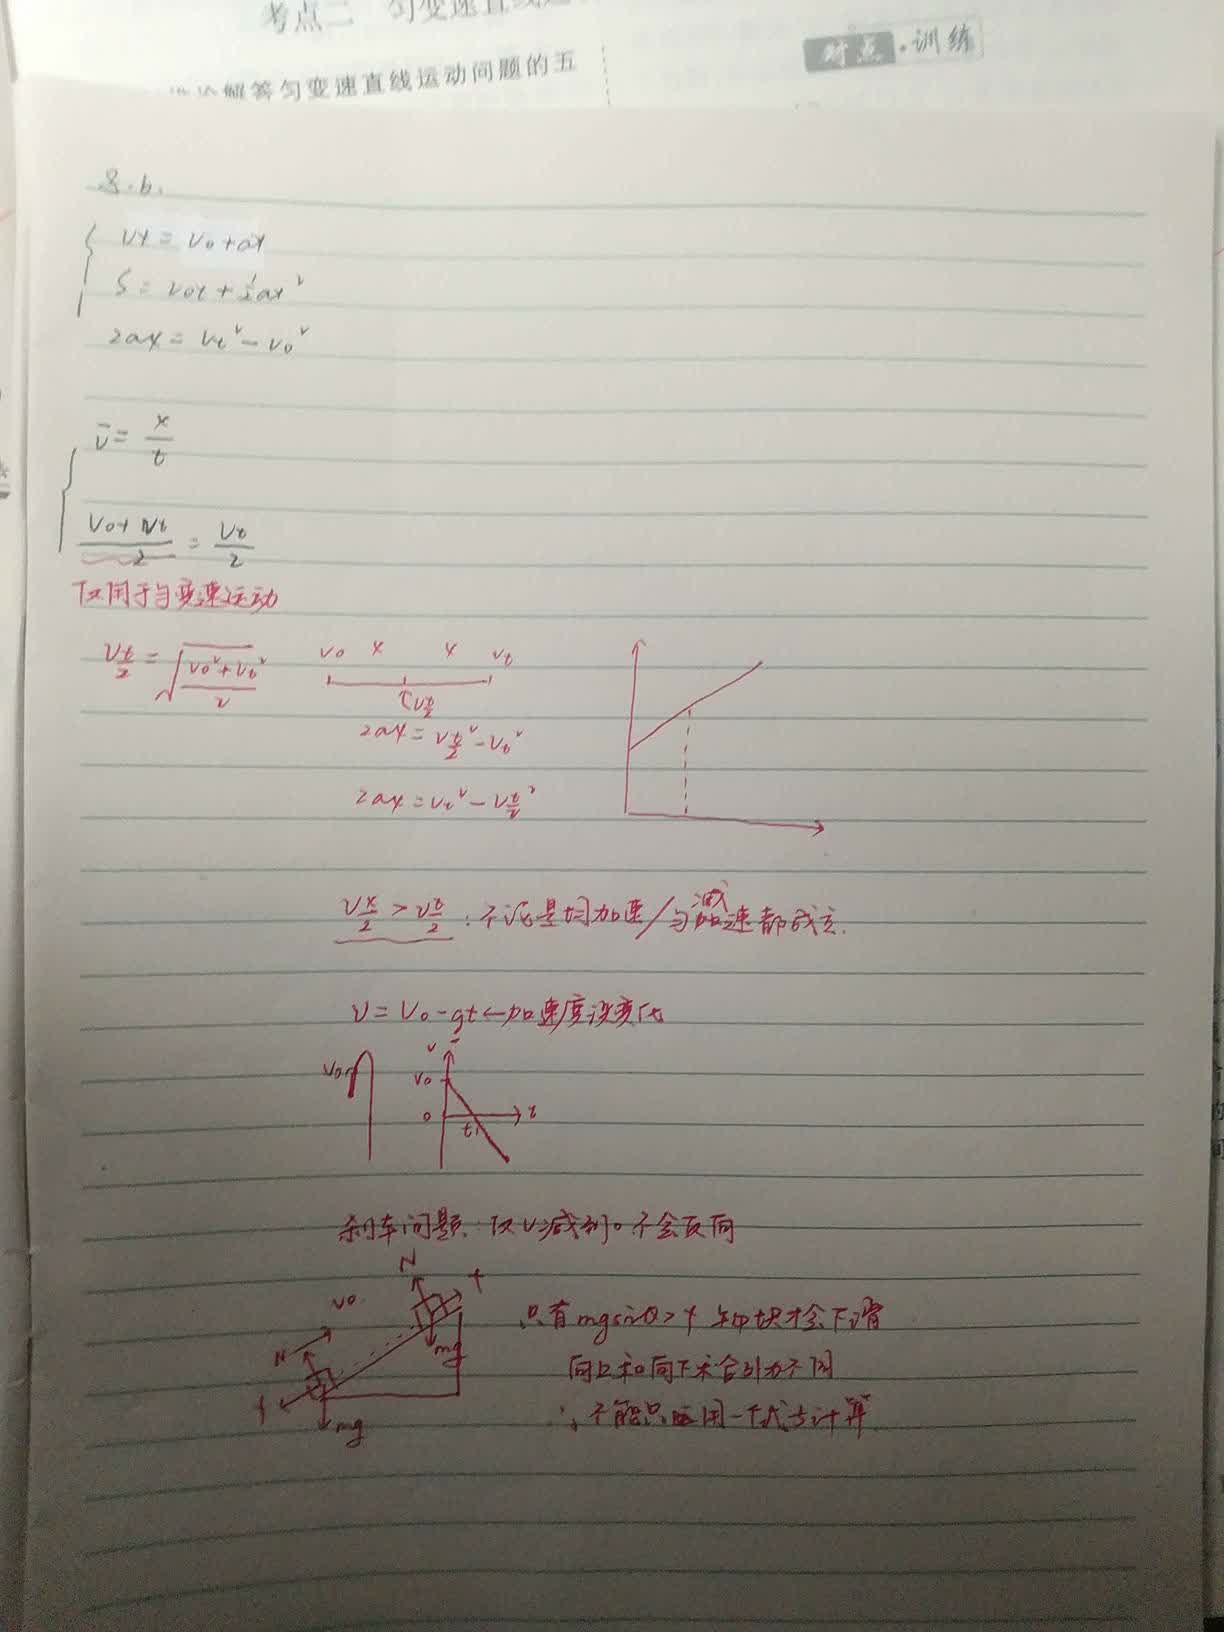 考点二 匀变速直线运
对点·训练
推论解答匀变速直线运动问题的五
8.6.
vt = v0+at
S = v0t + 1/2 at²
2ax = vt² - v0²
v̄ = x/t
(v0+vt)/2 = vt/2
仅用于匀变速运动
v t/2 = √((v0²+vt²)/2)
v0 x x vt
v t/2
2ax = v t/2² - vt²
2ax = vt² - v t/2²
v x/2 > v t/2 : 不论是均加速/匀减速都成立.
v = v0 - gt ← 加速度没变化
v
v0 v0
0 t1 t
刹车问题. 仅v减到0不会反向
N f
v0
N mg
f mg
只有mgsinθ > f 物块才会下滑
向上和向下未合外力不同
∴ 不能只运用一个式去计算